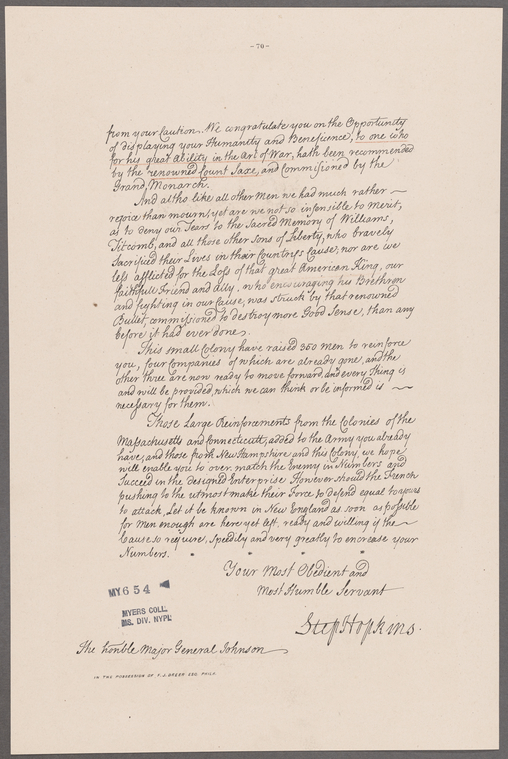 - 70 -
from your Caution. We congratulate you on the Opportunity
of displaying your Humanity and Beneficence, to one who
for his great Ability in the Art of War, hath been recommended
by the renowned Count Saxe, and Commissioned by the
Grand, Monarch.
And altho like all other Men we had much rather
rejoice than mourn, yet are we not so insensible to merit,
as to deny our Tears to the Sacred Memory of Williams,
Titcomb, and all those other Sons of Liberty, who bravely
Sacrificed their Lives in their Countrys Cause, nor are we
less afflicted for the Loss of that great American King, our
faithfull Friend and Ally, who encouraging his Brethren
and fighting in our Cause, was struck by that renowned
Bullet, commissioned to destroy more Good Sense, than any
before it had ever done.
This small Colony have raised 350 Men to reinforce
you, four Companies of which are already gone, and the
other three are now ready to move forward, and every thing is
and will be provided, which we can think or be informed is
necessary for them.
Those Large Reinforcements from the Colonies of the
Massachusetts and Connecticutt, added to the Army you already
have, and those from New Hampshire and this Colony, we hope
will enable you to over match the Enemy in Numbers and
Succeed in the designed Enterprise However should the French
pushing to the utmost make their Force to defend equal to yours
to attack, Let it be known in New England as soon as possible
for Men enough are here yet left, ready and willing if the
Cause so require, Speedily and very greatly to encrease your
Numbers. * * * *
Your Most Obedient and
Most Humble Servant
Step Hopkins.
MY 654
MYERS COLL.
MS. DIV. NYPL
The honble Major General Johnson
IN THE POSSESSION OF F. J. DREER ESQ. PHILA.